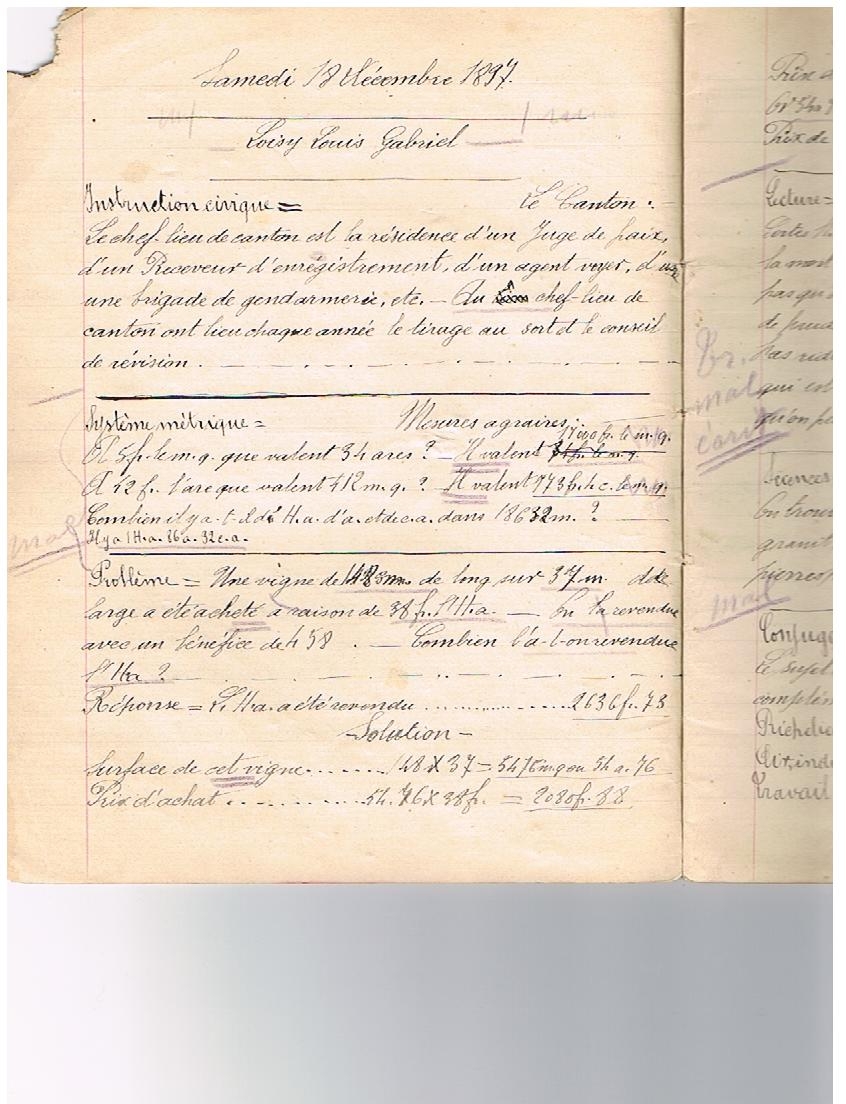 Samedi 18 Décembre 1897.
Loisy Louis Gabriel
Instruction civique = Le Canton.
Le chef-lieu de canton est la résidence d'un Juge de paix,
d'un Receveur d'enrégistrement, d'un agent voyer, d'une
une brigade de gendarmerie, etc. – Au chef-lieu de
canton ont lieu chaque année le tirage au sort et le conseil
de révision.
Système métrique = Mesures agraires.
17000 f. le m.q.
A 5f. le m.q. que valent 34 ares ? – Il valent
A 42 f. l'are que valent 412 m.q. ? Il valent 173 f. 4 c. le m.q.
Combien il y a-t-il d' H.a. d'a. et de c.a. dans 18632 m. ?
Il y a 1 H.a. 86 a. 32 c.a.
mal
Problème = Une vigne de 148 m. de long sur 37 m. de
large a été acheté à raison de 38 f. l'Ha. — On la revendue
avec un bénéfice de 458. — Combien l'a-t-on revendue
l'Ha ?
Réponse = L'H.a. a été revendu 2636 f. 73
Solution –
Surface de cet vigne 148 X 37 = 5476 m.q ou 54 a. 76
Prix d'achat 54.76 X 38 f. = 2080 f. 88
Prix
Prix de
Lecture =
la mort
pas qu
de
pas
qui est
qu'on
mal
écrit
Sciences
On trouve
granit
pierres
mal
Conjug
Le sujet
complém
Travail